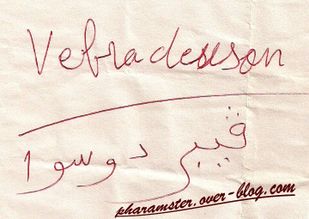 Vebradesson
ڤيبر دوسوا
pharamster.over-blog.com